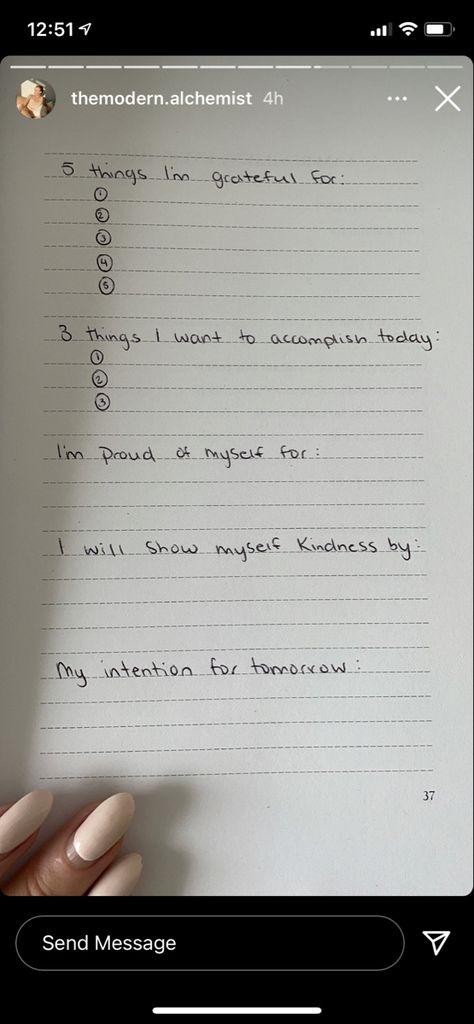 12:51
themodern.alchemist 4h
5 things I'm grateful for:
1
2
3
4
5
3 things I want to accomplish today:
1
2
3
I'm Proud of myself for:
I will show myself kindness by:
My intention for tomorrow:
37
Send Message